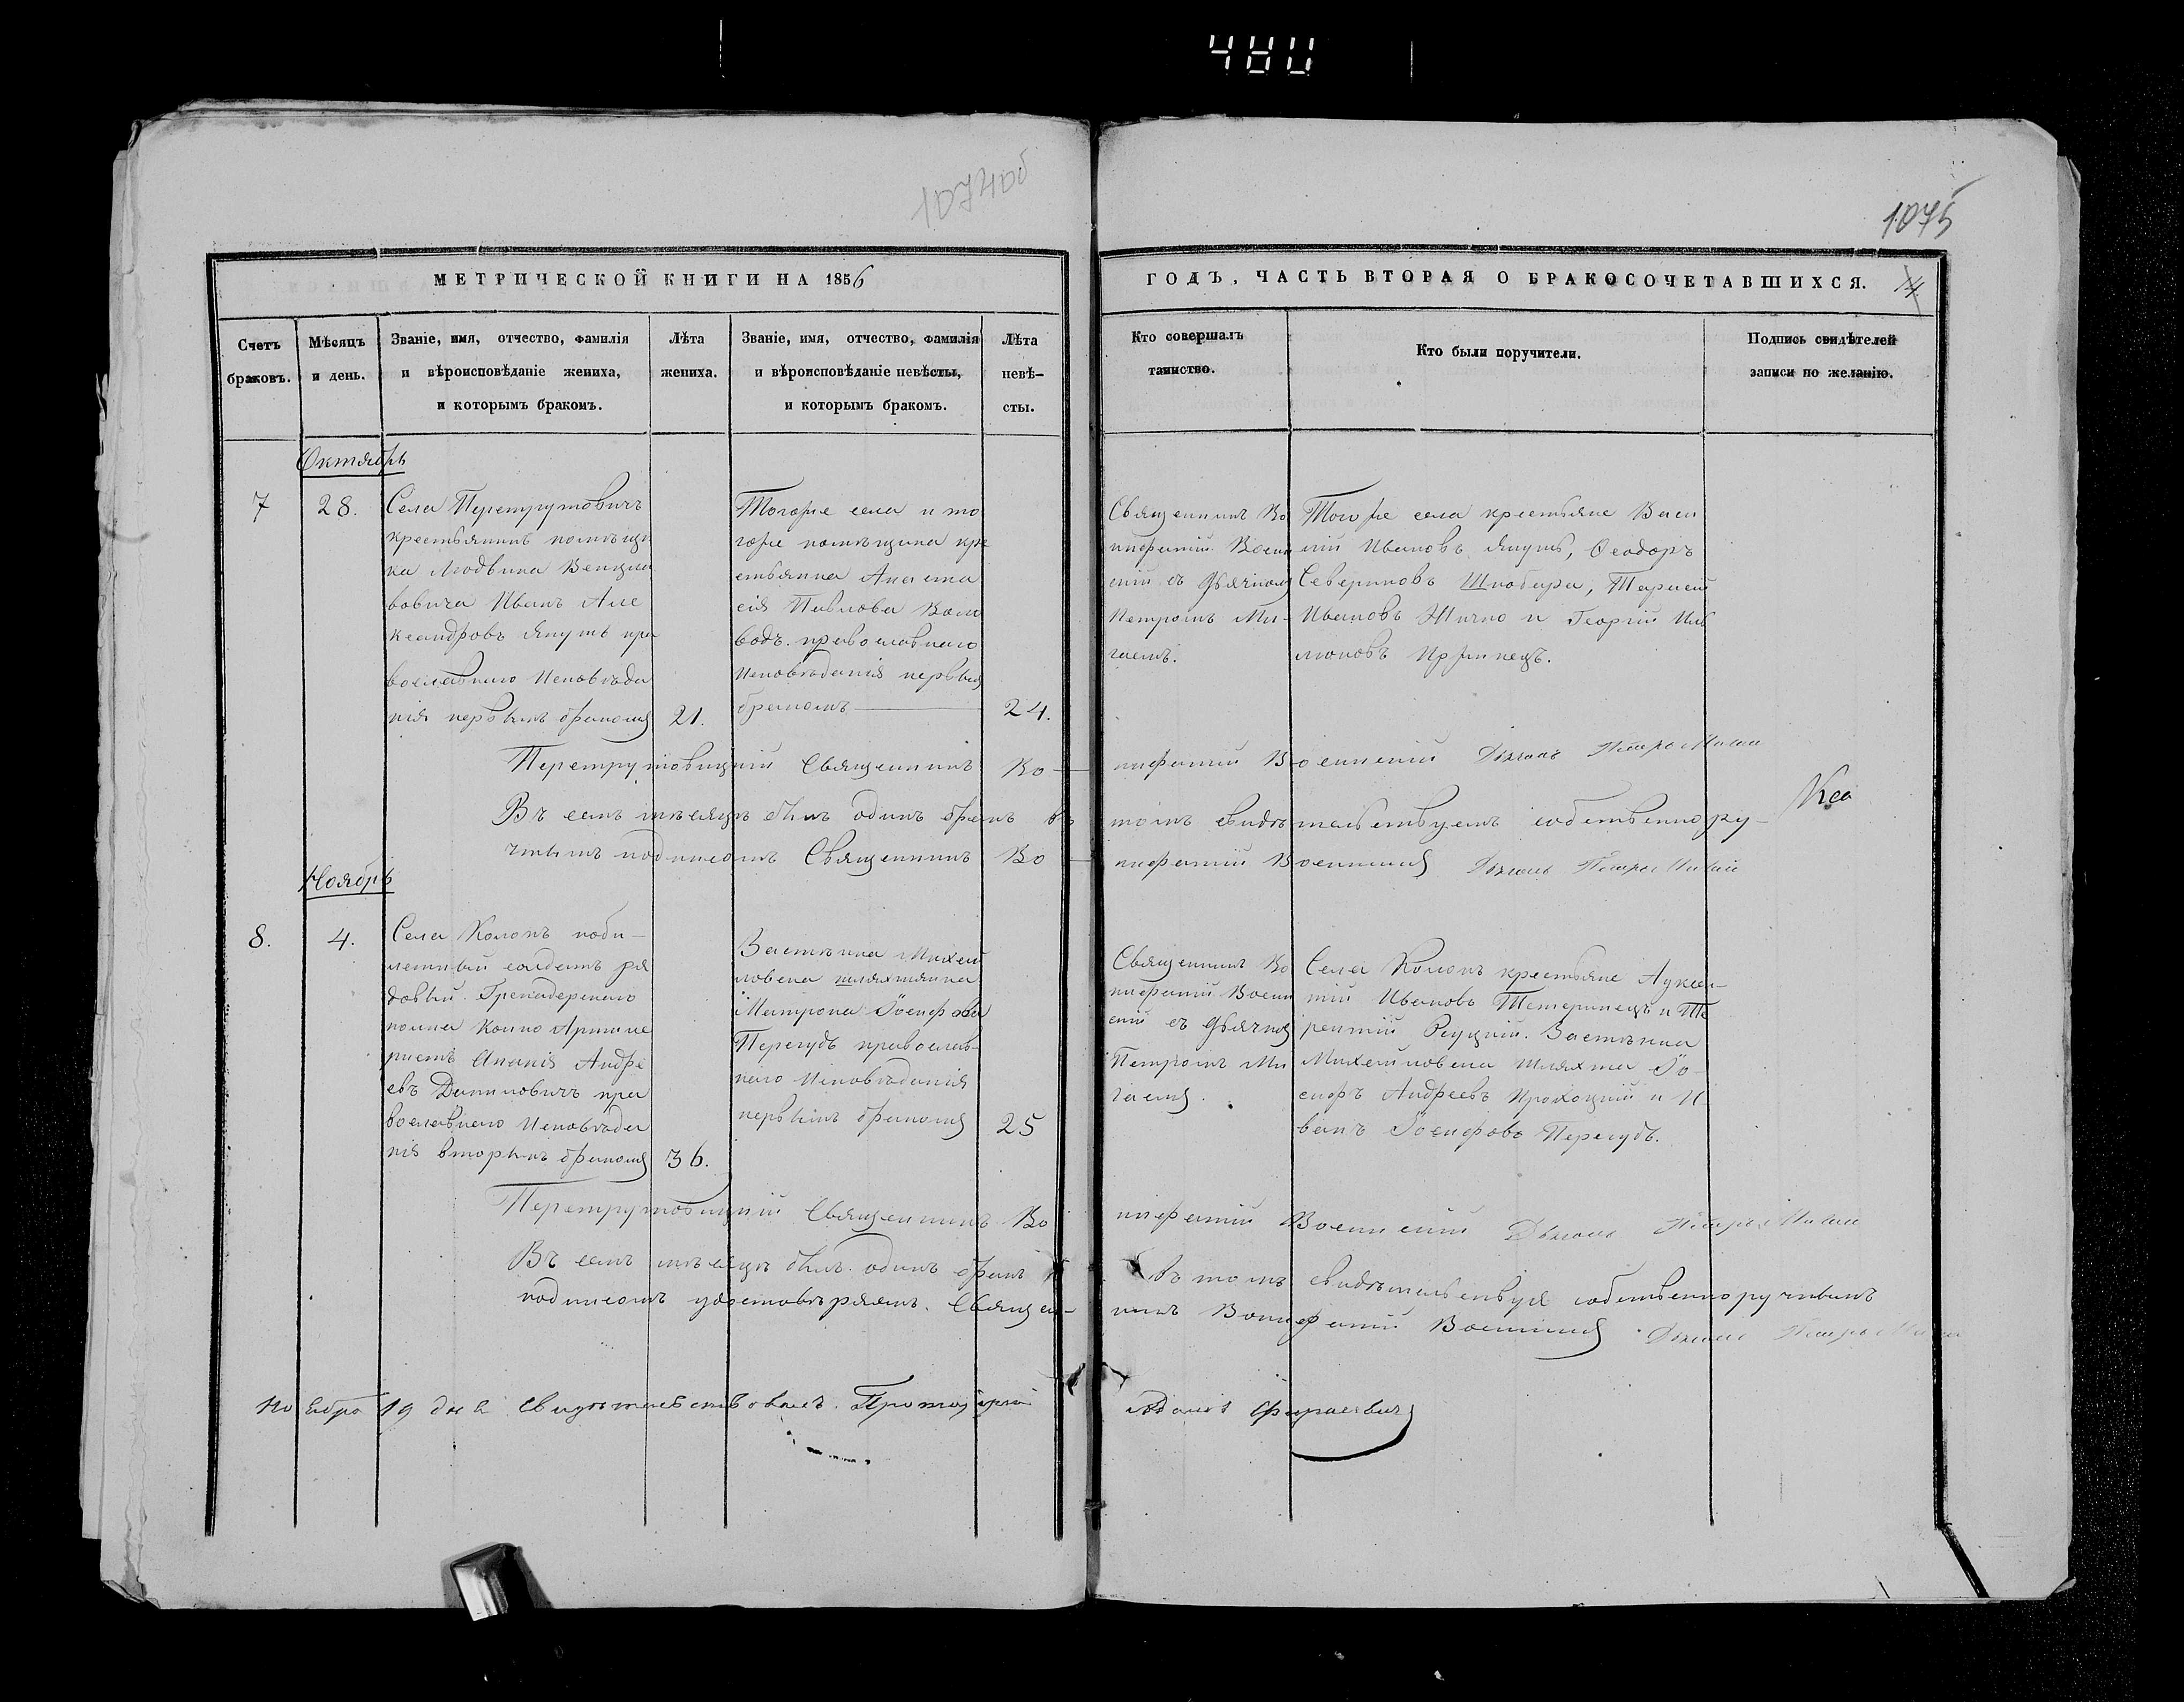 480
1074об
1075
МЕТРИЧЕСКОЙ КНИГИ НА 1856
ГОДЪ, ЧАСТЬ ВТОРАЯ О БРАКОСОЧЕТАВШИХСЯ.
Счетъ
браковъ.
Мѣсяцъ
и день.
Званіе, имя, отчество, фамилія
и вѣроисповѣданіе жениха,
и которымъ бракомъ.
Лѣта
жениха.
Званіе, имя, отчество, фамилія
и вѣроисповѣданіе невѣсты,
и которымъ бракомъ.
Лѣта
невѣ-
сты.
Кто совершалъ
таинство.
Кто были поручители.
Подпись свидѣтелей
записи по желанію.
Октябрь
7
28.
Села Перетрутовичъ
крестьянинъ помѣщи
ка Людвика Венцла
вовича Иванъ Але
ксандровъ Янутъ пра
вославнаго Исповѣда
нія первымъ бракомъ
21.
Тогоже села и то
гоже помѣщика кре
стьянка Анаста
сія Павлова Воло
водъ православнаго
Исповѣданія первымъ
бракомъ
24.
Священникъ Во
нифатій Воени
скій съ Дьячкомъ
Петромъ Ми-
гаемъ.
Того же села крестьяне Васи
лій Ивановъ Янутъ, Ѳеодоръ
Севериновъ Шкобара, Тарасій
Ивановъ Жичко и Георгій
Перетрутовицкій Священникъ Во
нифатій Воеминскій Дьячокъ Петръ Мигай
Въ семъ мѣсяцѣ былъ одинъ бракъ въ
томъ свидѣтельствуемъ собственнору-
чнымъ подписомъ Священникъ Во
нифатій Дьячокъ Петръ Мигай
Ноябрь
8.
4.
Села Колокъ поби-
летный солдатъ ря
довый Гренадерскаго
полка Конно Артиле
ристъ Ананія Андре
евъ Даниловичъ пра
вославнаго Исповѣда
нія вторымъ бракомъ
36.
Застѣнка Михай
ловска шляхтянка
Матрона Іосифова
Перегудъ православ-
наго Исповѣданія
первымъ бракомъ
25
Священникъ Во
нифатій Воени
скій съ Дьячкомъ
Петромъ Ми
гаемъ.
Села Колокъ крестьяне Ауксен-
тій Ивановъ Тетеринецъ и Те
рентій Реуцкій. Застѣнка
Михайловска Шляхта Іо-
сифъ Андреевъ и И-
ванъ Іосифовъ Перегудъ.
Перетрутовицкій Священникъ Во
нифатій Дьячокъ Петръ Мигай
Въ семъ мѣсяцѣ былъ одинъ бракъ
въ томъ свидѣтельствуя собственноручнымъ
подписомъ удостовѣряемъ. Священ-
никъ Вонифатій Дьячокъ Петръ
Ноября 19 дня Свидѣтельствовалъ Протоіерей